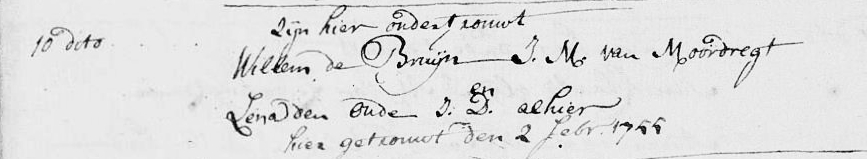 10 dito
zijn hier ondertrouwt
Willem de Bruijn J. M. van Moordregt
en
Lena den oude J. D. alhier
hier getrouwt den 2 febr. 1755